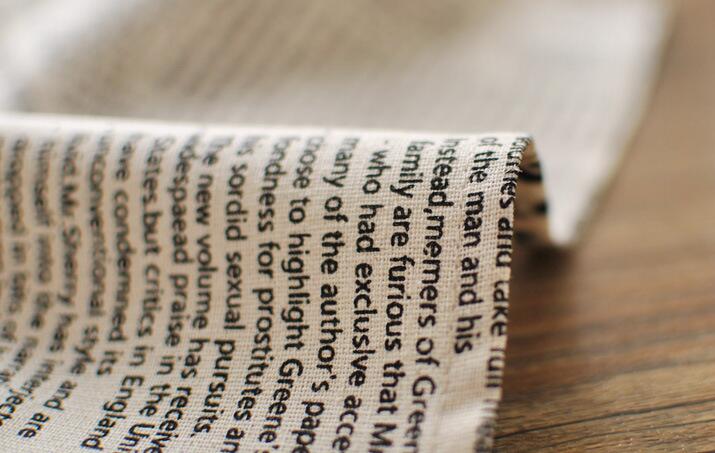 and take full
of the man and his
Instead,memers of Green
family are furious that M
who had exclusive acce
many of the author's pape
chose to highlight Greene's
fondness for prostitutes an
sordid sexual pursuits.
The new volume has receive
edespaead praise in the Uni
States.but critics in England
have condemned its
unconventional style and are
Mr. Sherry has interjec
himself into the